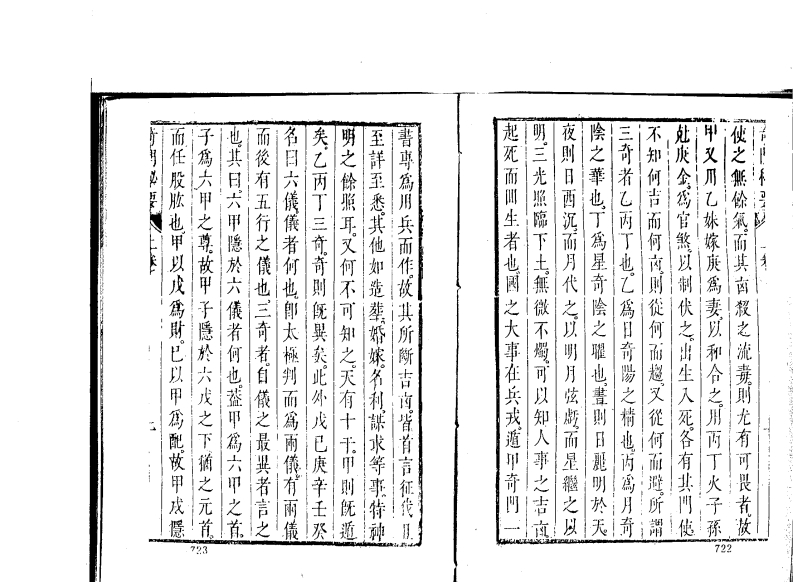 使之無餘氣。而其卤殺之流毒。則尤有可畏者。故
甲又用乙妹嫁庚爲妻。以和合之。用丙丁火子孫
尅庚金。爲官煞。以制伏之。出生入死。各有其門。使
不知何吉而何卤。則從何而趨。又從何而避。所謂
三奇者乙丙丁也。乙爲日奇陽之精也。丙爲月奇
陰之華也。丁爲星奇陰之曜也。晝則日麗明於天。
夜則日西沉。而月代之。以明月弦虧。而星繼之以
明。三光照臨下土。無微不燭。可以知人事之吉卤
起死而囬生者也。國之大事在兵戎。遁甲奇門一
722
書專爲用兵而作。故其所斷吉卤。皆首言征伐且
至詳至悉。其他如造葬。婚嫁。名利。謀求等事。特神
明之餘照耳。又何不可知之。天有十干。甲則旣遁
矣。乙丙丁三奇。奇則旣異矣。此外戊巳庚辛壬癸
名曰六儀。儀者何也。卽太極判而爲兩儀。有兩儀
而後有五行之儀也。三奇者。自儀之最異者言之
也。其曰。六甲隱於六儀者何也。葢甲爲六甲之首。
子爲六甲之尊。故甲子隱於六戊之下猶之元首。
而任股肱也。甲以戊爲財。巳以甲爲配。故甲戌隱
奇門秘要 上卷
723